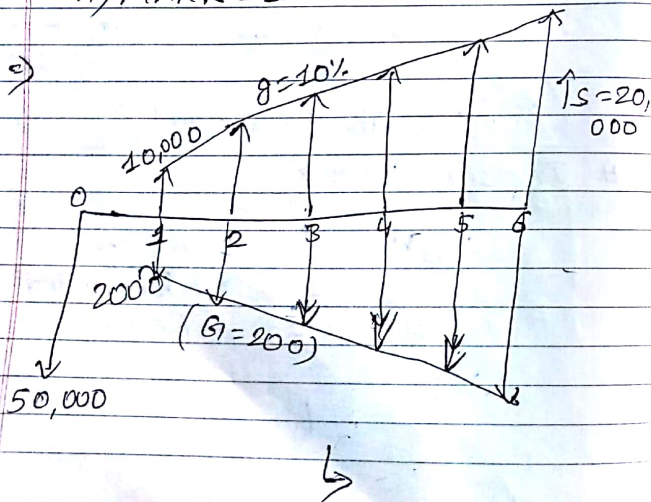 c)
g=10%
10,000
↑S=20,
000
0
1 2 3 4 5 6
2000
(G=200)
50,000